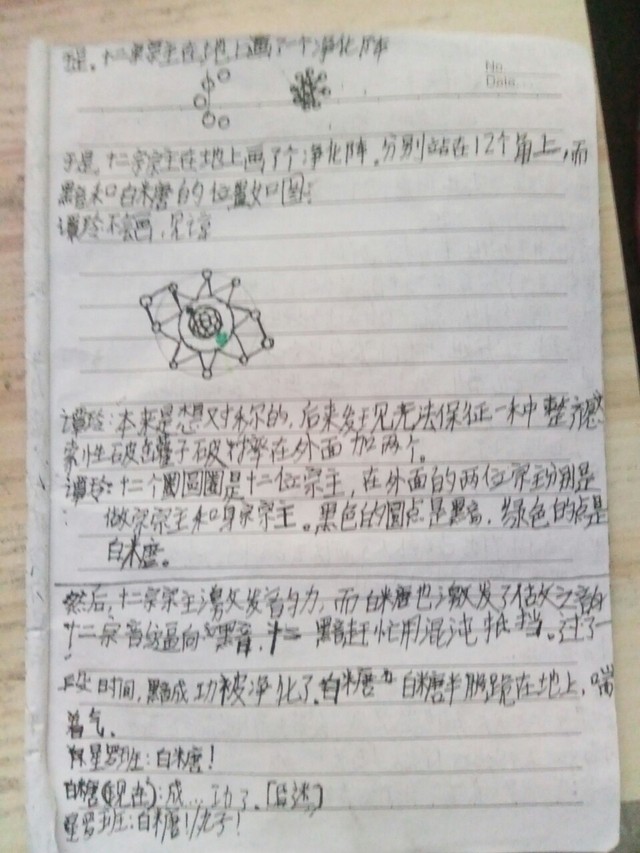 于是，十二宗宗主在地上画了一个净化阵
No.
Date.
于是，十二宗宗主在地上画了个净化阵，分别站在12个角上，而
黯和白糖的位置如图：
谭玲不会画，见谅
谭玲：本来是想对称的，后来发现无法保证一种整齐感
索性破罐子破摔在外面加两个。
谭玲：十二个圈圈是十二位宗主，在外面的两位宗主分别是
做宗宗主和身宗宗主。黑色的圆点是黯，绿色的点是
白糖。
然后，十二宗宗主激发韵力，而白糖也激发了
十二宗音纹逼向黯，黯赶忙用混沌抵挡。过了一
段时间，黯成功被净化了。白糖 白糖半跪在地上，喘
着气。
星罗班：白糖！
白糖：成…功了。
星罗班：白糖！/丸子！